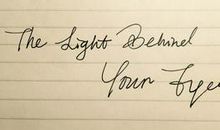 The Light Behind
Your Eyes